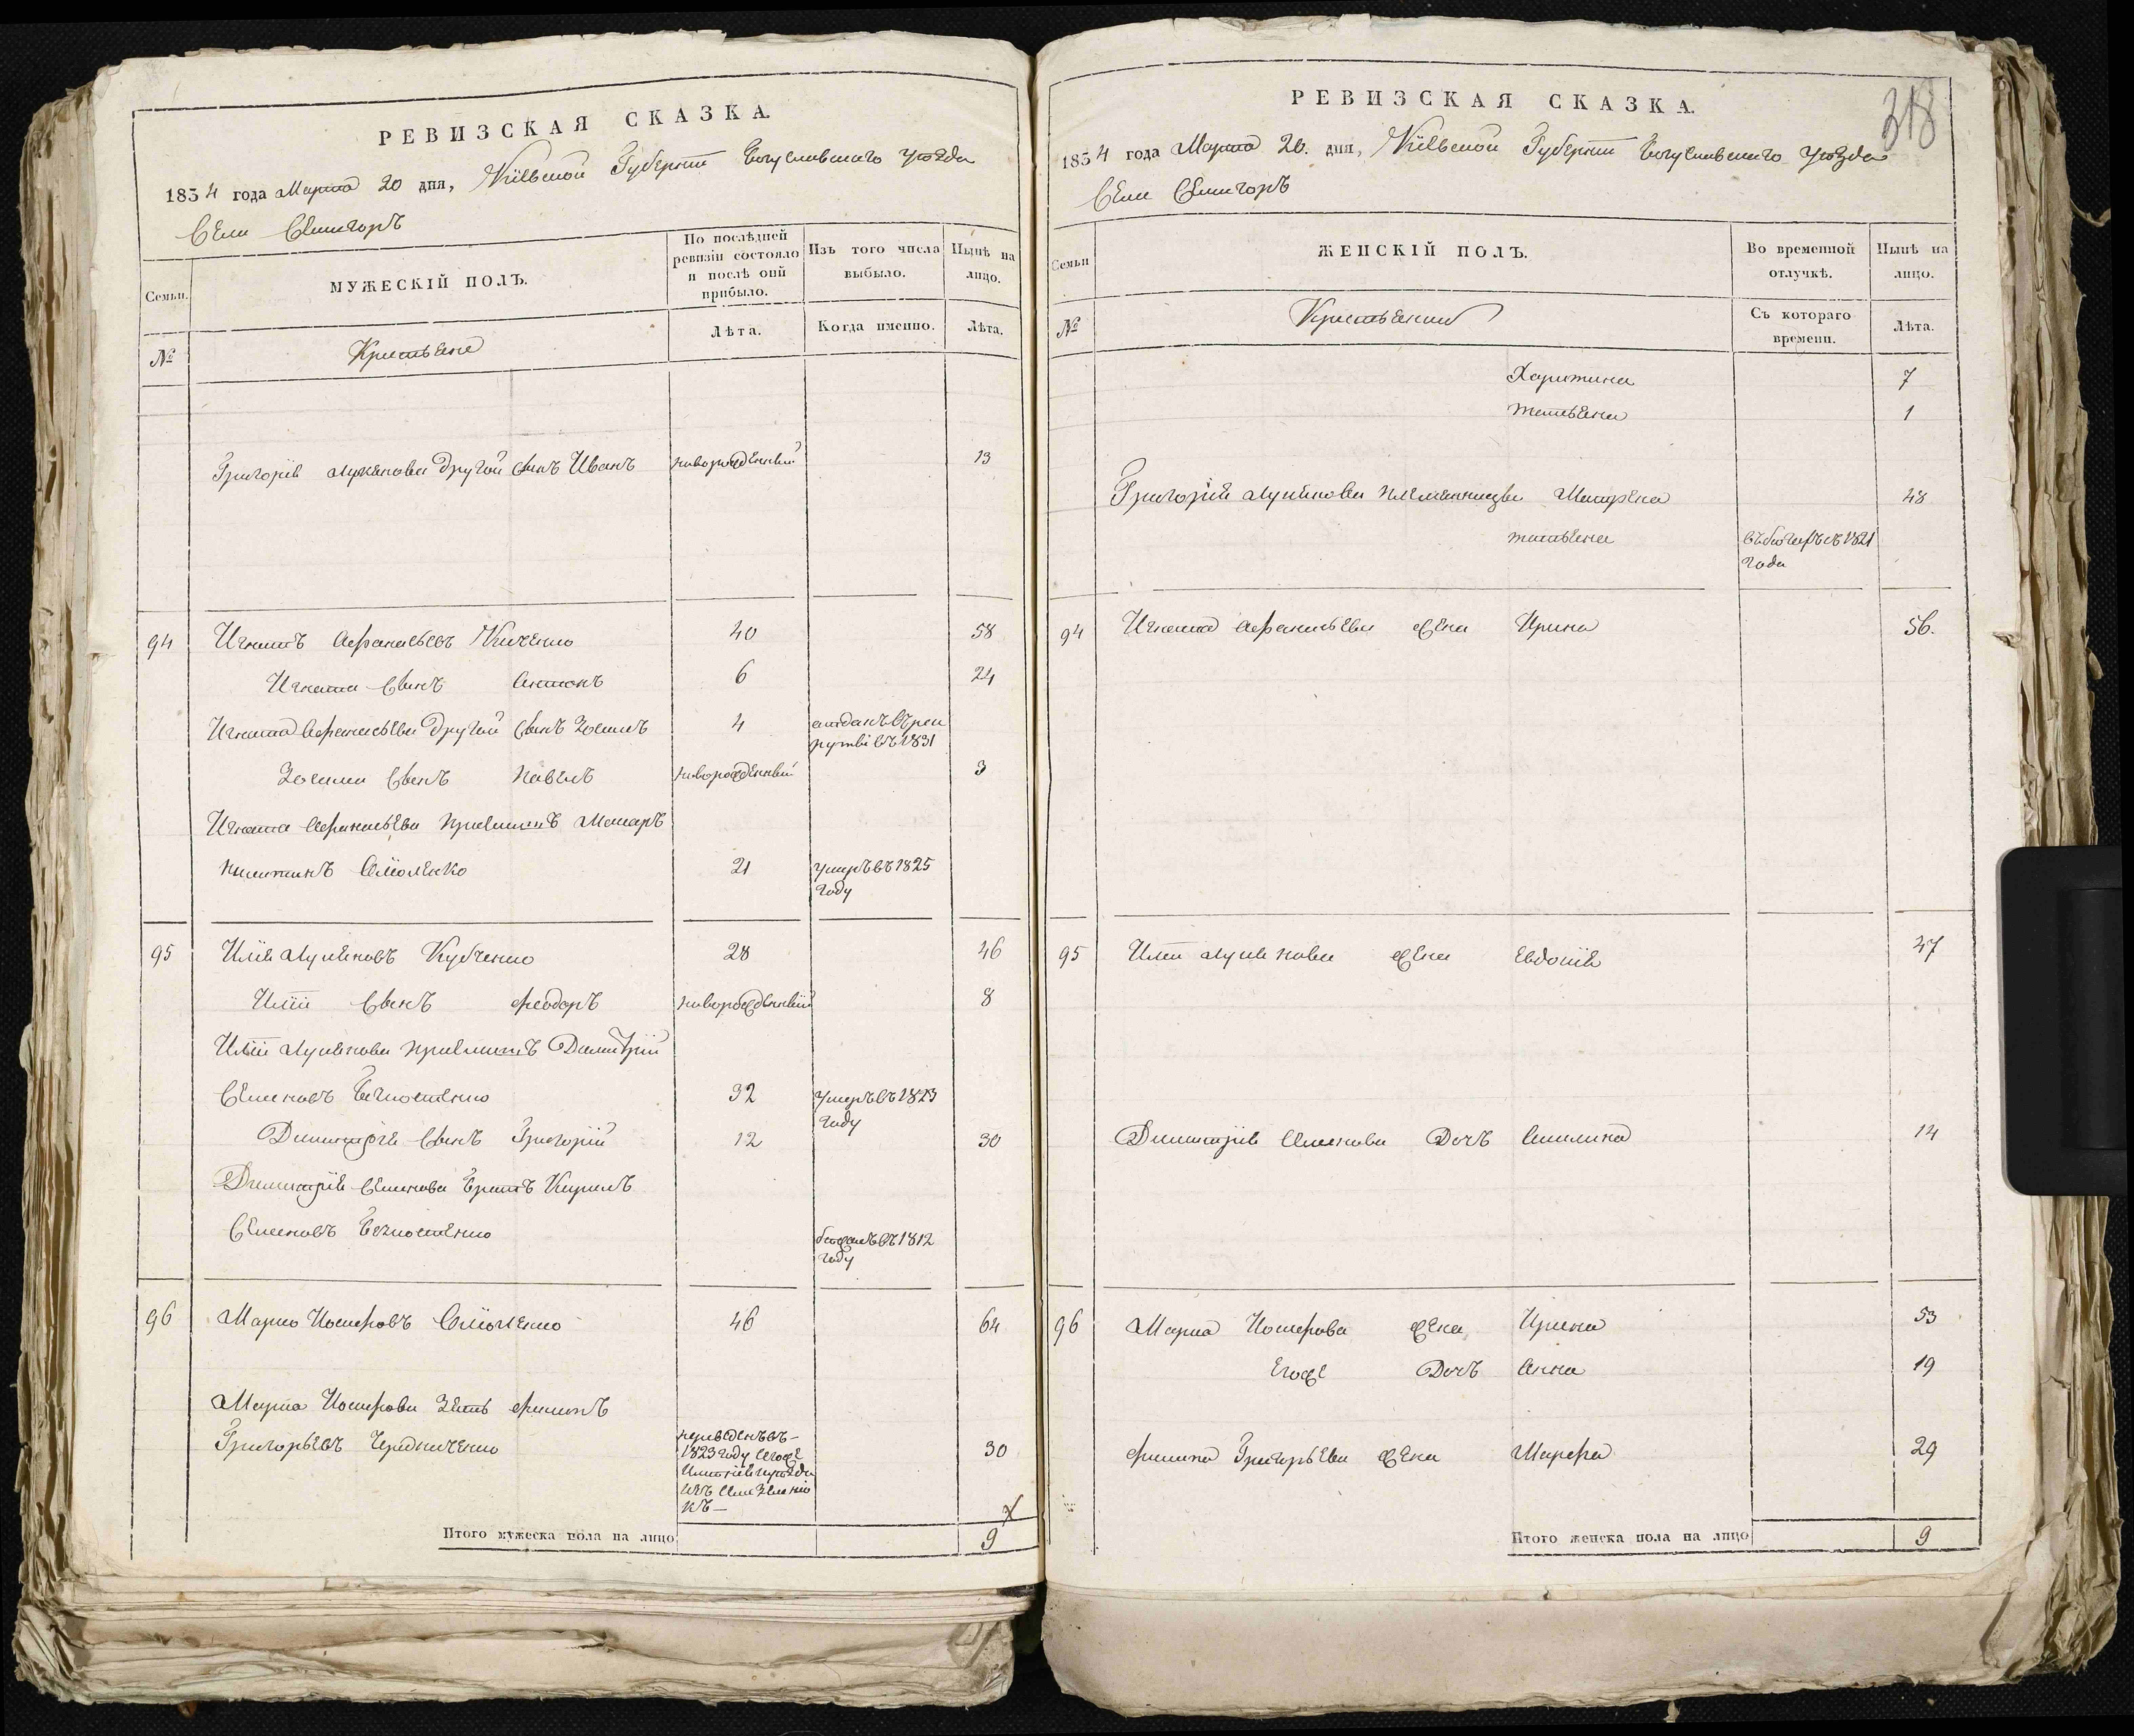 РЕВИЗСКАЯ СКАЗКА.
1834 года Марта 20 дня, Кіевской Губерніи Богуславскаго уѣзда
Села Семигоръ
Семьи.
МУЖЕСКІЙ ПОЛЪ.
По послѣдней ревизіи состояло и послѣ оной прибыло.
Изъ того числа выбыло.
Нынѣ на лицо.
№
Крестьяне
Лѣта.
Когда именно.
Лѣта.
Григорія Лукянова другой сынъ Иванъ новорожденный 13
94 Игнатъ Афанасьевъ 40 58
Игната сынъ Антонъ 6 24
Игната Афанасьева другой сынъ Зосимъ 4 отданъ въ рек
рутві въ 1831
Зосима сынъ Павелъ новорожденный 3
Игната Афанасьева приімитъ Макаръ
21 умеръ въ 1825
году
95 Илія Лукяновъ Кубченко 28 46
Иліи сынъ Феодоръ новорожденный 8
Иліи Лукянова приімитъ Димитрій
Семеновъ 32 умеръ въ 1823
году
Димитрія сынъ Григорій 12 30
Димитрія Семенова братъ Кирилъ
Семеновъ бежалъ въ 1812
году
96 Марко Иосифовъ 46 64
Марка Иосифова зять Филипъ
Григорьевъ Чередниченко 30
переведенъ въ
1823 году
X
Итого мужеска пола на лицо 9
РЕВИЗСКАЯ СКАЗКА.
318
1834 года Марта 20. дня, Кіевской Губерніи Богуславскаго уѣзда
Села Семигоръ
Семьи
ЖЕНСКІЙ ПОЛЪ.
Во временной отлучкѣ.
Нынѣ на лицо.
№
Крестьянки
Съ котораго времени.
Лѣта.
Харитина 7
Татьяна 1
Григорія Лукянова племянницы Мотрена 48
Татьяна въ бегахъ съ 1821
года
94 Игната Афанасьева жена Ирина 56.
95 Иліи Лукянова жена Евдокія 47
Димитрія Семенова дочъ Акилина 14
96 Марка Иосифова жена Ирина 53
Егоже дочъ Анна 19
Филипа Григорьева жена Марфа 29
Итого женска пола на лицо 9